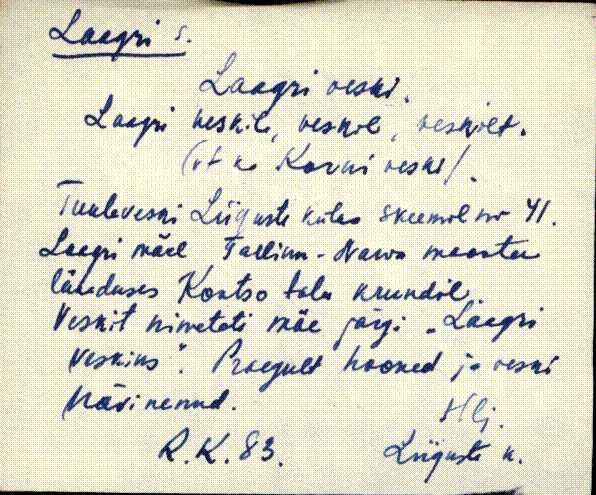 Laagri s.
Laagri veski.
Laagri veskile, veskil, veskilt.
(vt ka Korvi veski).
Tuuleveski Liiguste külas skeemil nr 41.
Laagri mäel Tallinn-Narva maantee
läheduses Kontso talu krundil
Veskit nimetati mäe järgi "Laagri
veskiks". Praegult hooned ja veski
hävinenud.
Hlj.
R.K. 83. Liiguste k.